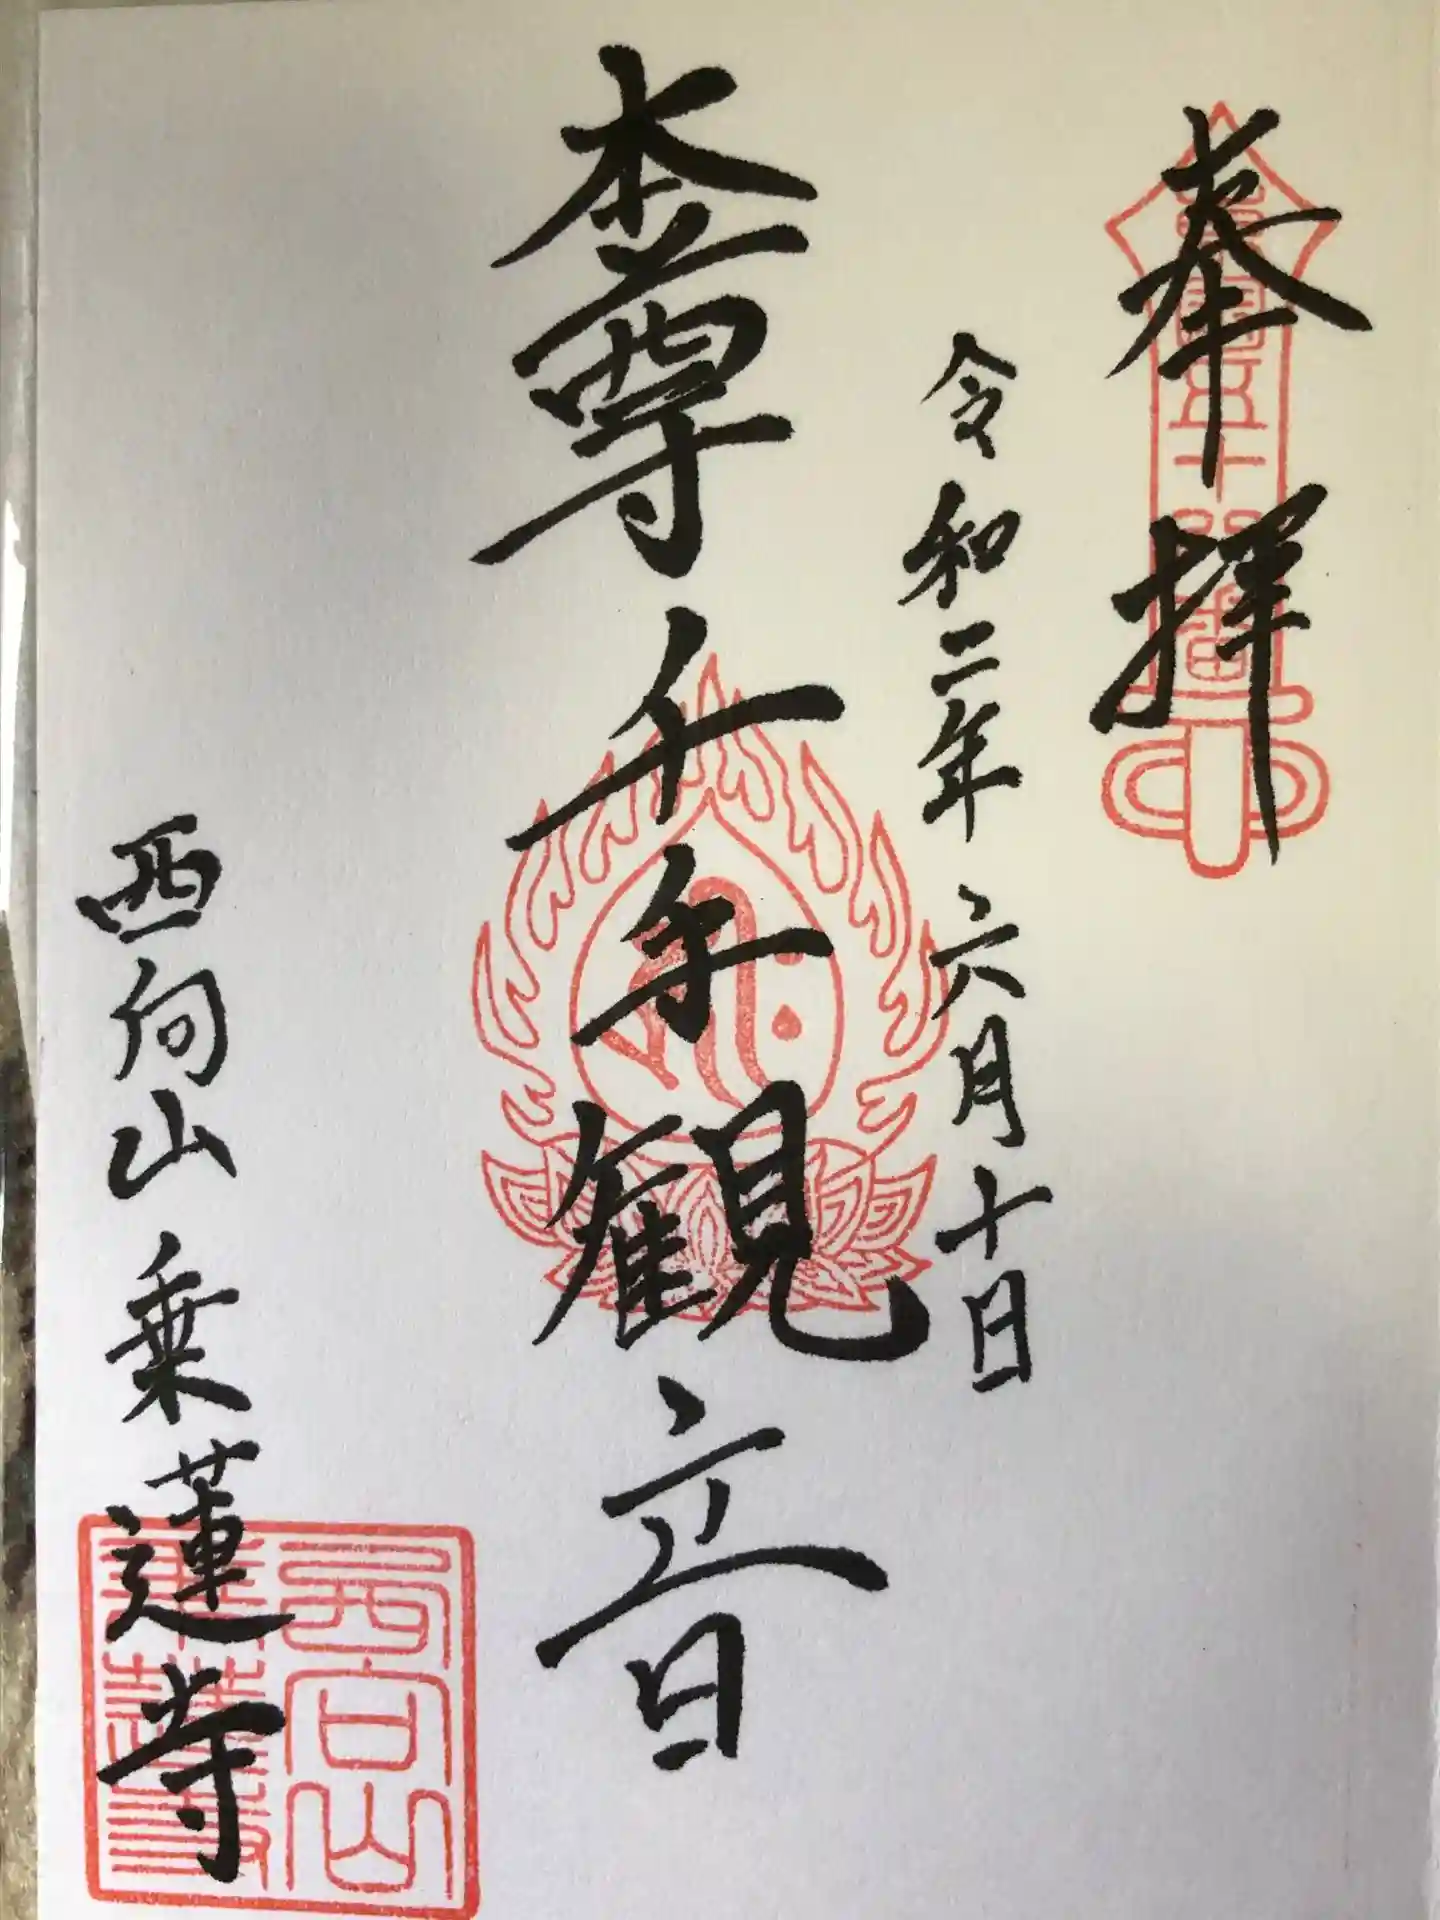 奉拝
令和二年六月十日
本尊千手観音
西向山乗蓮寺
西向山
乗蓮寺